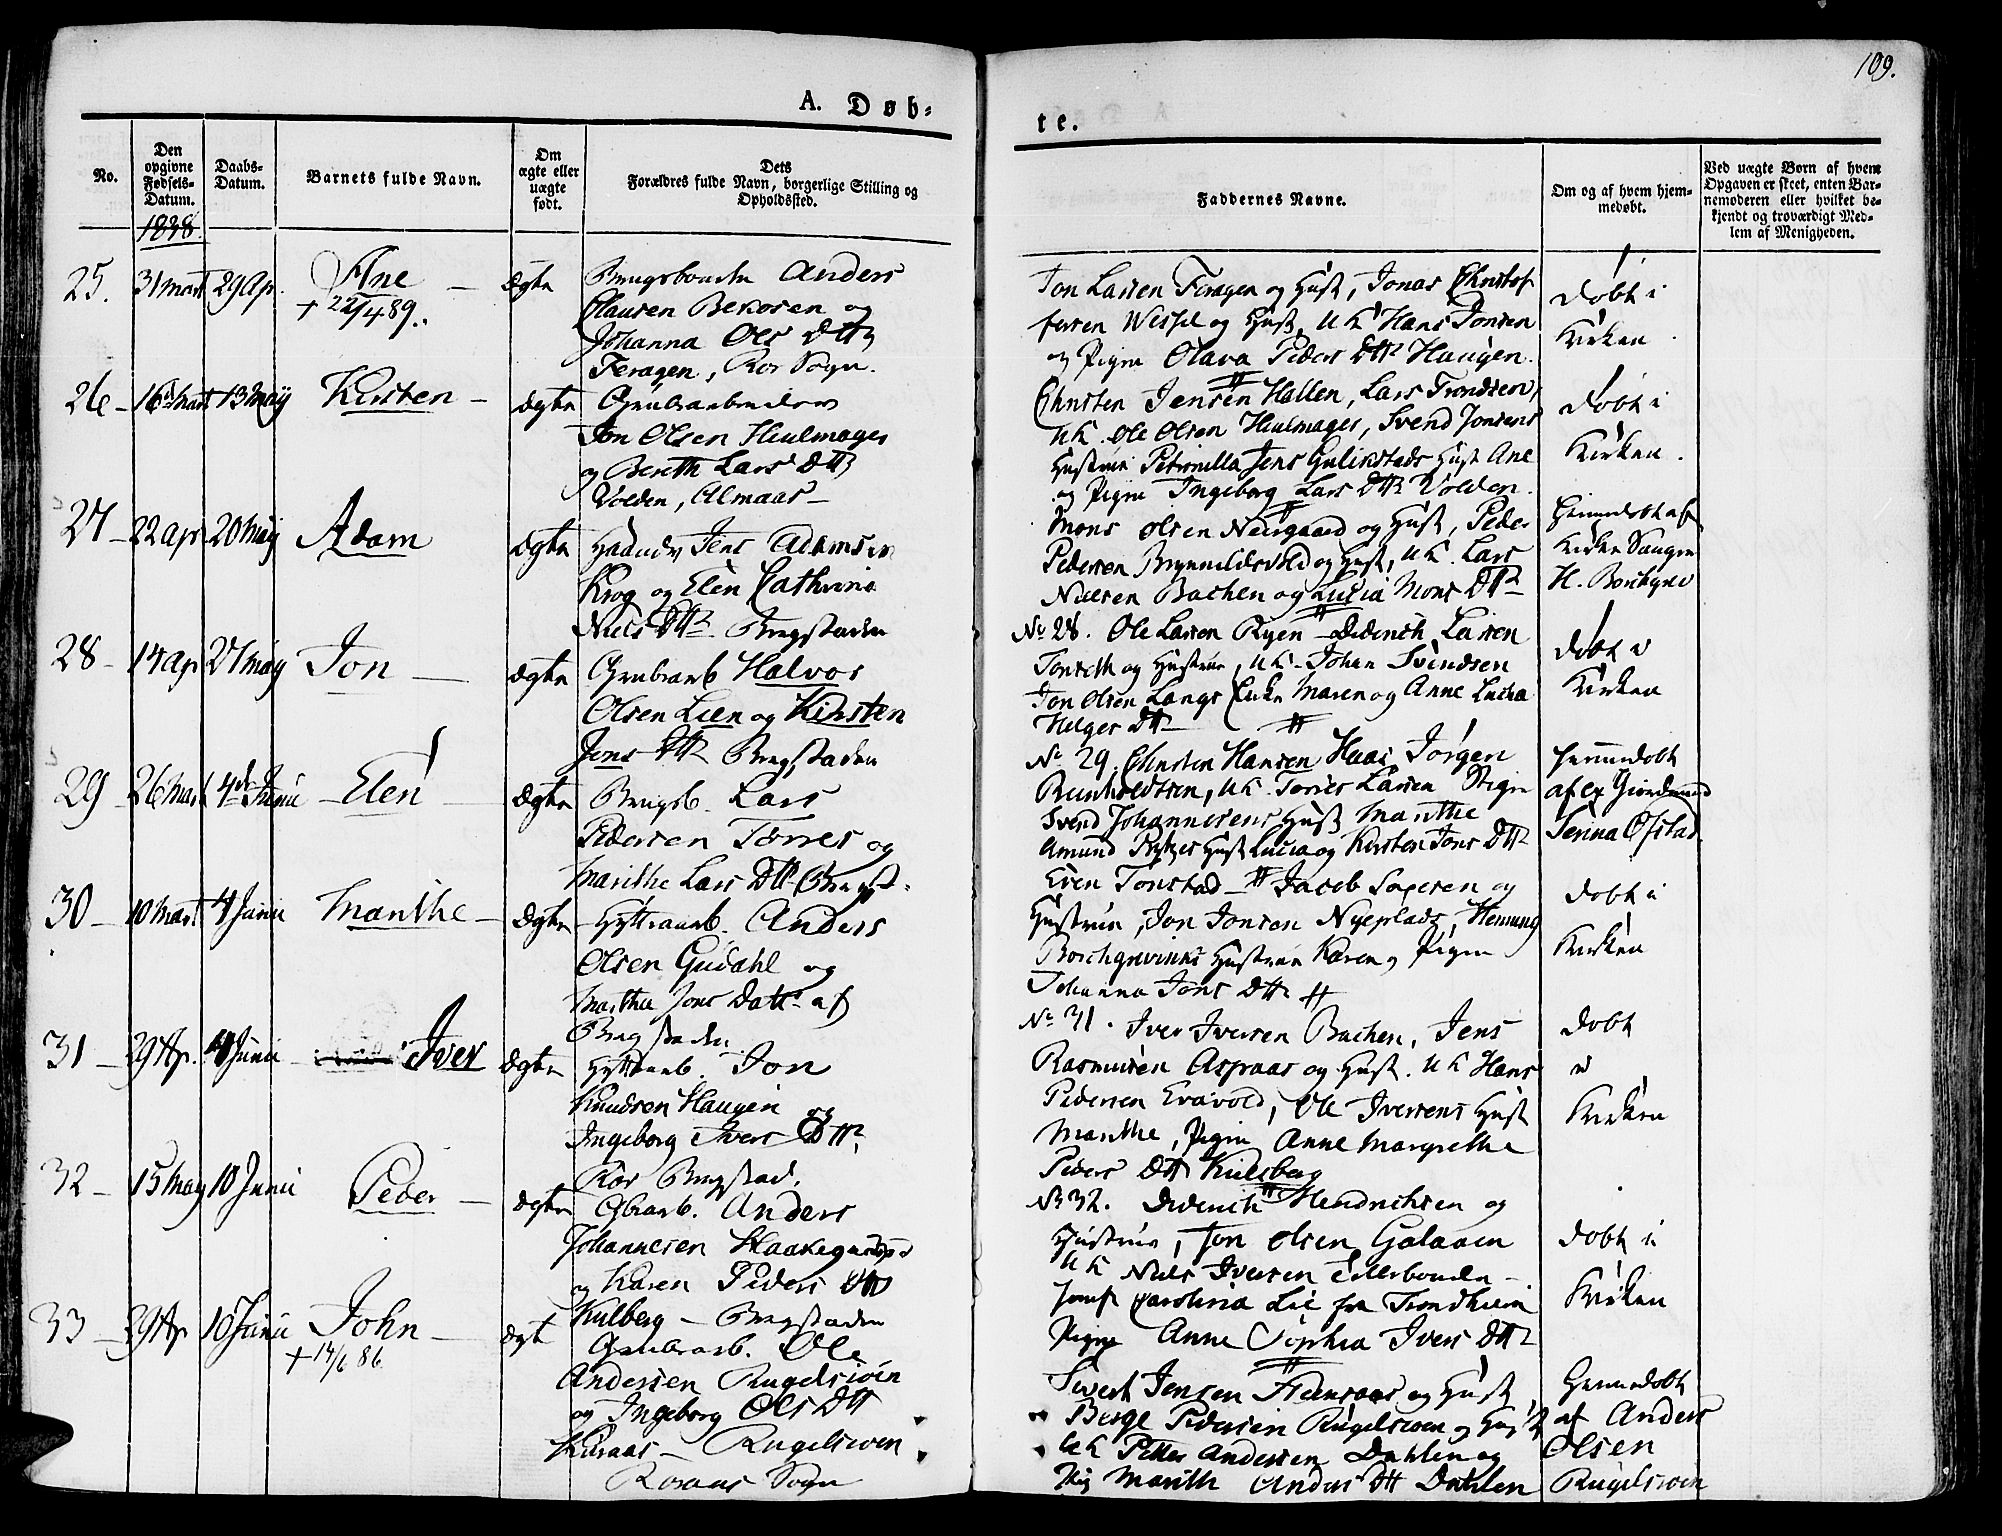 109.
A. Døb-
te.
No.
Den opgivne Fødsels-Datum.
Daabs-Datum.
Barnets fulde Navn.
Om ægte eller uægte født.
Dets Forældres fulde Navn, borgerlige Stilling og Opholdssted.
Faddernes Navne.
Om og af hvem hjemmedøbt.
Ved uægte Børn af hvem Opgaven er skeet, enten Barnemoderen eller hvilket bekjendt og troværdigt Medlem af Menigheden.
1838
25. 31 Mart 29 Ap. Ane — ægte
+ 22/4 89.
Anders
Clausen Bekosen og
Johanna Ols Dtt
Feragen, Ror Sogn.
Jon Larsen Feragen og Hust, Jonas Christof
fersen Wessel og Hust, UK Hans Jonsen
og Pigen Olava Peders Dtr Haugen.
døbt i
Kirken
26 - 16 Mart 13 May Kirsten — ægte
Grubearbeider
Jon Olsen Hiulmager
og Bereth Lars Dtt
Volden, Almaas —
Christen Jensen Hallen, Lars Trondsen,
UK. Ole Olsen Hiulmager, Svend Jonsens
Hustrue Petronilla Jens Gulikstads Hust Ane
og Pigen Ingeborg Lars Dtr Volden.
døbt i
Kirken.
27 - 22 Apr 20 May Adam ægte
Jens Adamsen
Krog og Elen Cathrine
Niels Dtr Bergstaden
Mons Olsen Neergaard og Hust, Peder
Pedersen Brynnildsvold og Hust, UK. Lars
Nielsen Bachen og Lucia Mons Dtr
Hiemedøbt af
Kirke Sanger
H. Borchgrev
28 - 14 Ap 27 May Jon — ægte
Grubearb Halvor
Olsen Lien og Kirsten
Jons Dtr Bergstaden
No 28. Ole Larsen Ryen — Diderich Larsen
Tonseth og Hustrue, UK. Johan Svendsen
Jon Olsen Langs Enke Maren og Anne Lucia
Helges Dtr
døbt i
Kirken
29 - 26 Mart 4de Junii Elen ægte
Lars
Pedersen Torres og
Marithe Lars Dtt Bergst.
No 29. Christen Hansen Haas, Jørgen
UK. Torres Larsen
Svend Johannesens Hust Marithe
Amund Hust Lucia og Kirsten Jons Dtr
Hiemedøbt
af
Serina Ofstad.
30 - 10 Mart 4 Junii Marithe — ægte
Hyttearb. Anders
Olsen Gudahl og
Marthe Jons Datt. af
Bergstaden
Even Tonstad — Jacob og
Hustrue, Jon Jonsen Nyeplads, Henning
Borchgrevinks Hustrue Karen, Pigen
Johanna Jons Dtr
døbt i
Kirken
31 - 29 Ap. 4 Junii — Iver ægte
Hyttearb. Jon
Knudsen Haugen og
Ingeborg Ivers Dtr,
Ror Bergstad.
No 31. Iver Iversen Bachen, Jens
Rasmusen Aspaas og Hust. UK Hans
Pedersen Evavold, Ole Iversens Hust
Marithe, Pigen Anne Margrethe
Peders Dtt Kulsberg
døbt
i
Kirken
32 - 15 May 10 Junii Peder — ægte
Anders
Johannesen
og Karen Peders Dtt
Kulberg — Bergstaden
No 32. Diderich Hendrichsen og
Hustrue, Jon Olsen Galaaen
UK Niels Iversen
Jomf Carolina Lie fra Trondhiem
Pigen Anne Sophia Ivers Dtr
døbt i
Kirken
33 - 29 Ap 10 Junii John — ægt
+ 14/6 86.
Grubearb. Ole
Andersen Rugelsioen
og Ingeborg Ols Dtt
Kuraas — Rugelsioen
Roraas Sogn
Siverth Jensen og Hust
Berge Pedersen Rugelsioen og Hust
UK Petter Andersen Dahlen og
Pig Marith Anders Dtt Dahlen
Hiemedøbt
af Anders
Olsen
Rugelsioen